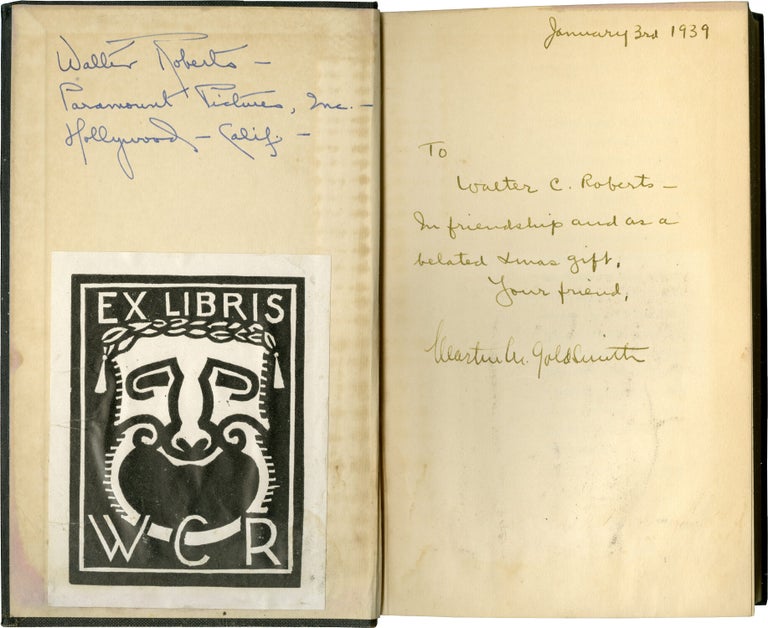 Walter Roberts —
Paramount Pictures, Inc. —
Hollywood — Calif. —
EX LIBRIS
W C R
January 3rd 1939
To
Walter C. Roberts —
In friendship and as a
belated Xmas gift,
Your friend,
Martin M. Goldsmith